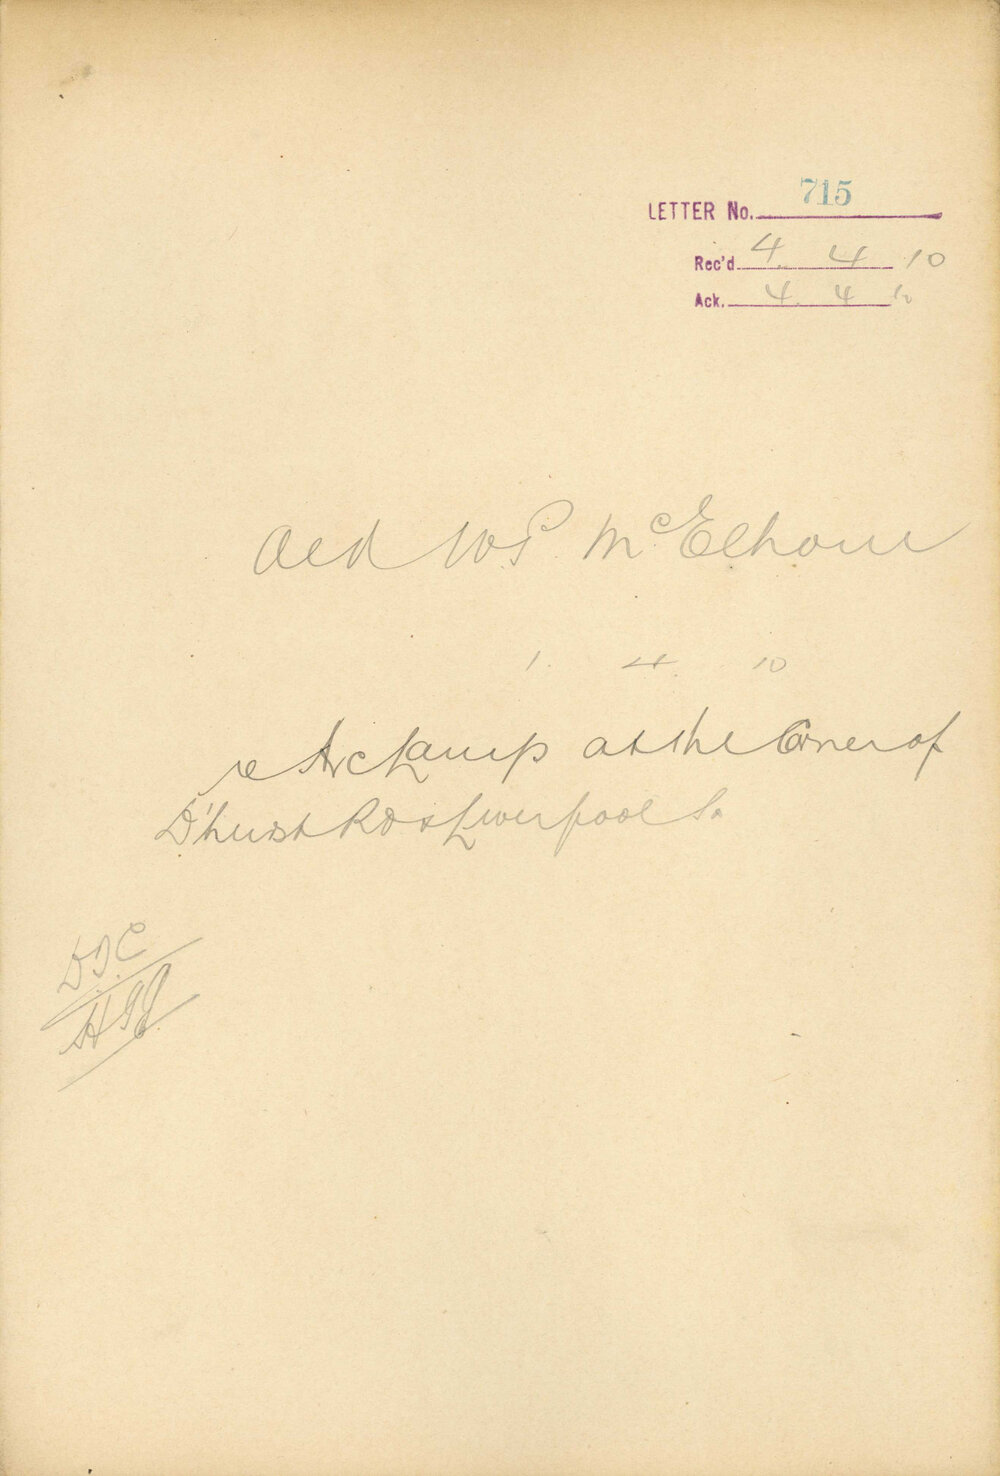 LETTER No. 715
Rec'd 4. 4 10
Ack. 4 4 10
Ald W.P. McElhone
1. 4. 10
re Arc Lamp at the Corner of
D'hurst Rd & Liverpool St
D.I.C